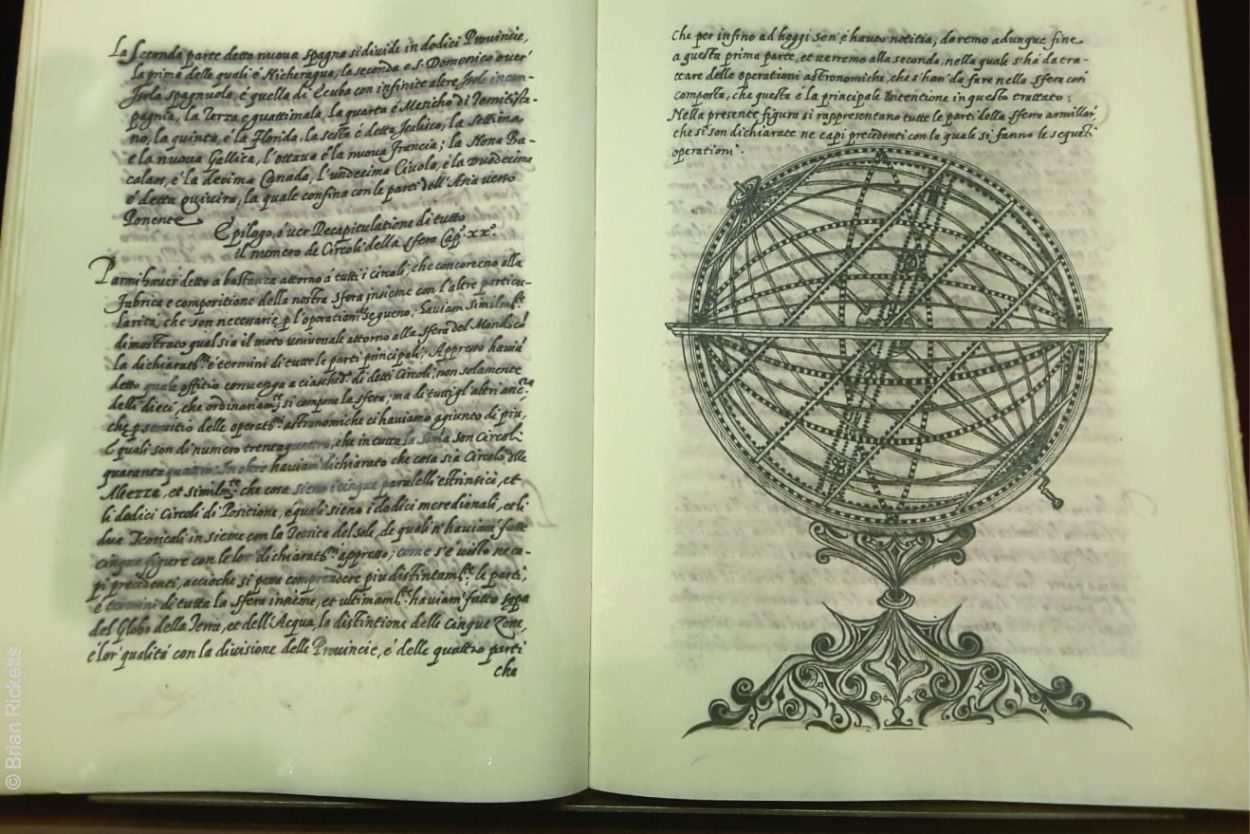 La Seconda parte detta nuova spagna si divide in dodici Provincie,
la prima delle quali é Nicheragua, la seconda é S. Domenico ouer'
Isola spagnuola, é quella di Ceuba con infinite altre Isole in com-
pagnia, la Terza é guattimala, la quarta é Messico di
no, la quinta, é la Florida, la sesta é detta Ialisco, la settima
é la nuoua Gallitia, l'ottaua é la nuoua francia; la Nona Ba-
calaos, é la Decima Canada, l'undecima Ciuola, é la duodecima
é detta Quiuira, la quale confina con le parti dell'Asia uerso
Ponente
Epilogo, ó uer Recapitulatione di tutto
il numero de Circoli della sfera Cap.º xxº
Parmi hauer' detto a bastanza attorno á tutti i circoli, che concorreno alla
fabrica e compositione della nostra sfera insieme con l'altre particu-
larita, che son necesarie p l'operationi se gueno, hauiam similmte
dimostrato qual sia il moto uniuersale attorno alla sfera del Mondo có
la dichiaratne é termini di tutte le parti principali; Appresso hauiá
detto quale offitio conuenga a ciaschno di detti Circoli, non solamente
delli dieci, che ordinariamte si compone la sfera; ma di tutti gl'altri anc.ª
che p seruitio delle operatni astronomiche ci hauiamo agiunto di piu,
E quali son di numero trentaquattro, che in tutta la soma son Circoli
quaranta quattro. In oltre hauiam' dichiarato che cosa sia Circolo
Altezza, et similmte che cosa sieno i cinque paralelli estrinsici, et
li dodici Circoli di Positione, e quali sieno i dodici meredionali, et li
dua Teoricali in sieme con la Teorica del sole, de quali n'hauiam' fatte
cinque figure con le lor' dichiaratni appreso; come s'é uisto ne ca-
pi precedenti, accioche si posa comprendere piu distintamte le parti,
é termini di tutta la sfera insieme, et ultimamte hauiam' fatto sopa
del Globo della Terra, et dell'Acqua, la distintione delle Cinque Zone,
é lor' qualitá con la diuisione delle Prouincie, é delle quattro parti
che
Che per infino ad hoggi sen'é hauto notitia, daremo adunque fine
a questa prima parte, et uerremo alla seconda, nella quale s'há da tra-
ttare delle operationi astronomiche, che s'han' da fare nella sfera cosi
composta, che questa é la principale Intentione in questo trattato;
Nella presente figura si rappresentano tutte le parti della sfera armillár,
che si son dichiarate ne capi precedenti con la quale si fanno le sequéti
operationi.
© Brian Ricketts